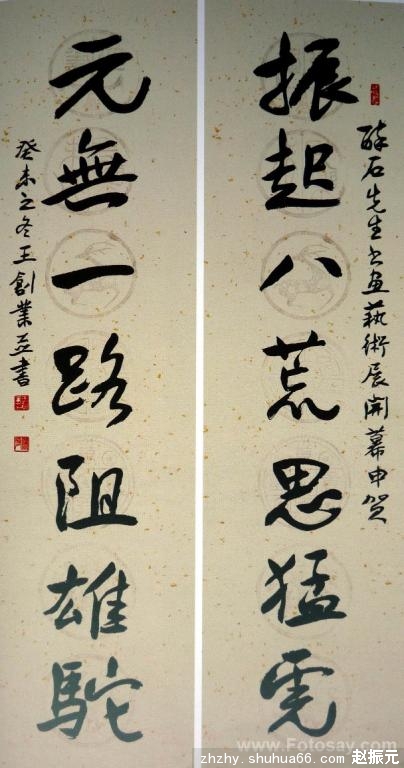 振起八荒思猛虎
醉石先生书画藝術展開幕申贺
元無一路阻雄駝
癸未之冬王創業並書
www.Fotosay.com
zhzhy.shuhua66.com 赵振元